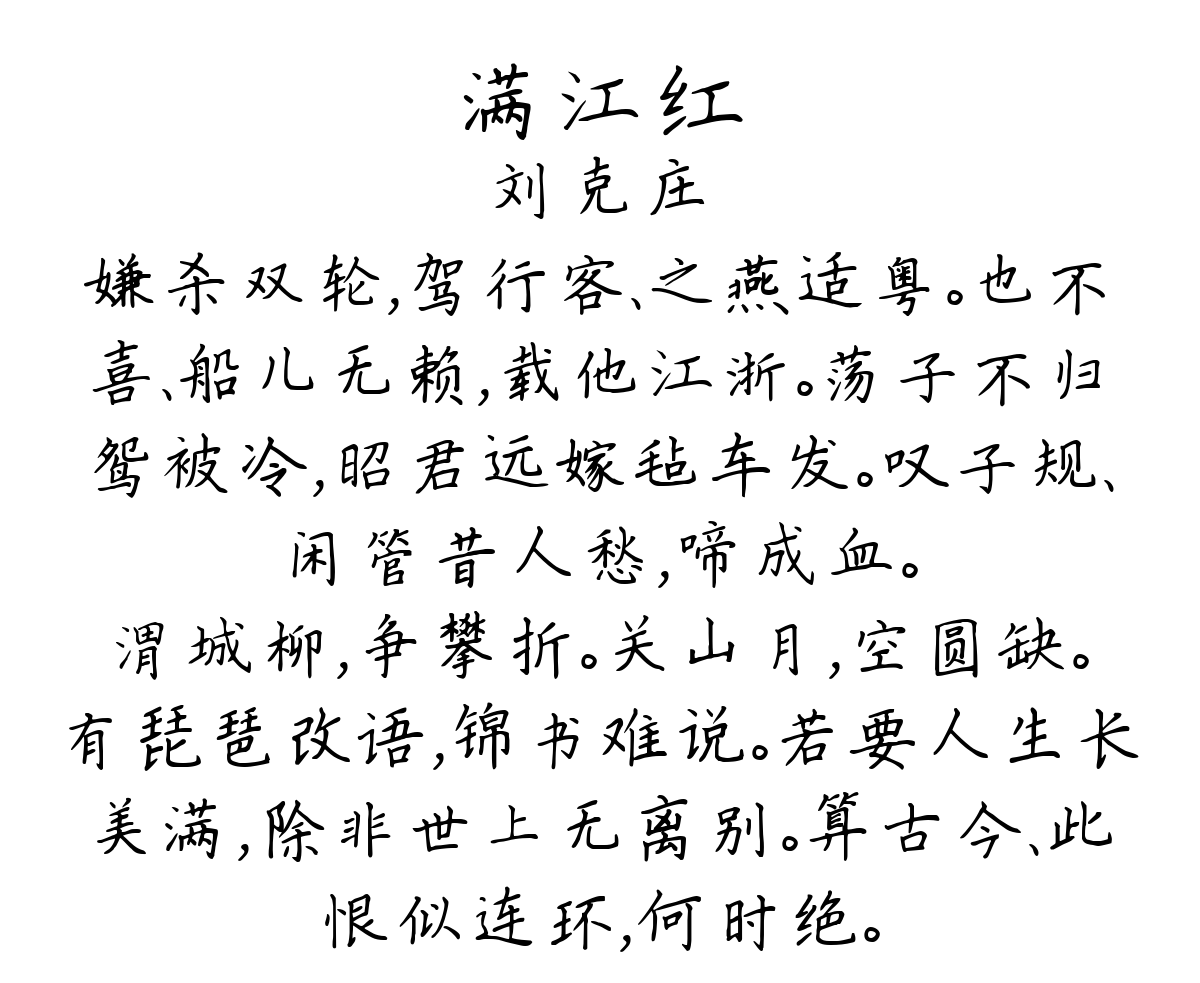 满江红
刘克庄
嫌杀双轮,驾行客、之燕适粤。也不
喜、船儿无赖,载他江浙。荡子不归
鸳被冷,昭君远嫁毡车发。叹子规、
闲管昔人愁,啼成血。
渭城柳,争攀折。关山月,空圆缺。
有琵琶改语,锦书难说。若要人生长
美满,除非世上无离别。算古今、此
恨似连环,何时绝。